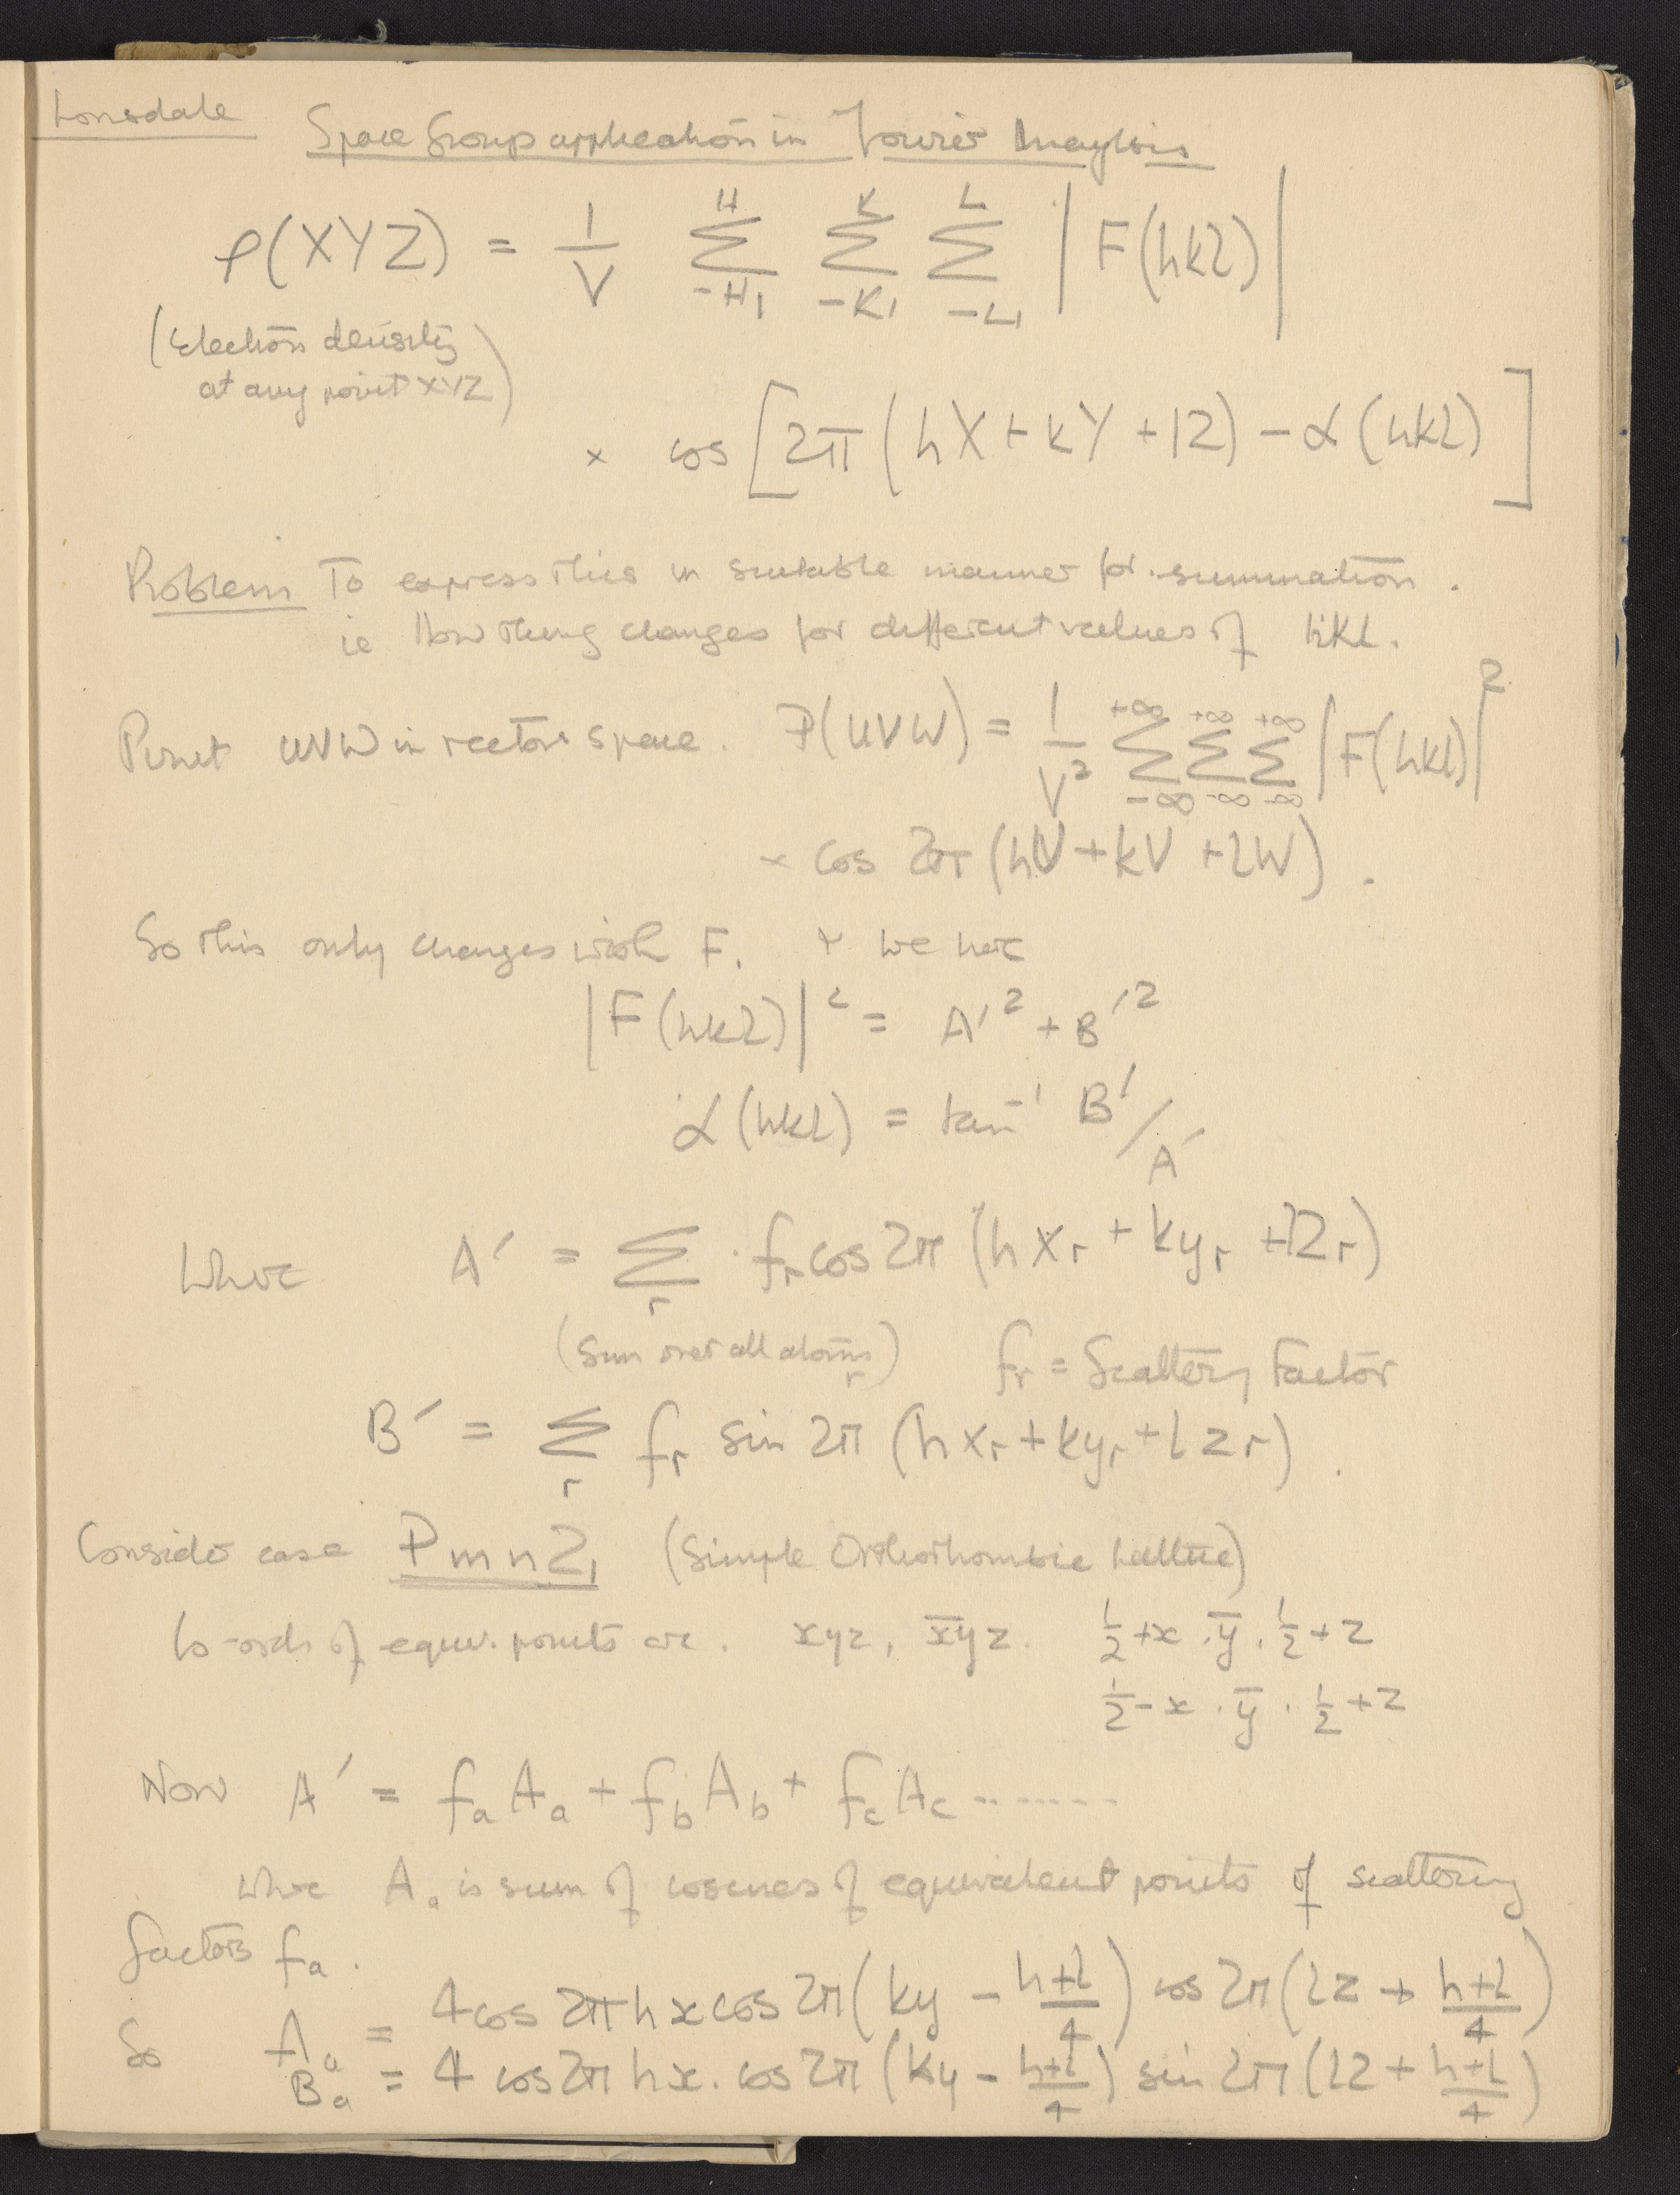 Lonsdale
Space Group application in Fourier Analysis
ρ(XYZ) = 1/V Σ(-H₁ to H) Σ(-K₁ to K) Σ(-L₁ to L) |F(hkl)|
(Electron density
at any point XYZ)
× cos [2π (hX + kY + lZ) − α (hkl)]
Problem To express this in suitable manner for summation.
ie How thing changes for different values of hkl.
Point UVW in vector space. P(UVW) = 1/V² Σ(-∞ to +∞) Σ(-∞ to +∞) Σ(-∞ to +∞) |F(hkl)|²
× cos 2π (hU + kV + lW).
So this only changes with F. + we have
|F(hkl)|² = A′² + B′²
α (hkl) = tan⁻¹ B′/A′
Where A′ = Σr . fr cos 2π (h xr + k yr + l zr)
(Sum over all atoms r) fr = Scattering Factor
B′ = Σr fr sin 2π (h xr + k yr + l zr).
Consider case Pmn2₁ (Simple Orthorhombic Lattice)
Co-ords of equiv. points are. xyz, x̄yz. ½+x . ȳ . ½+z
½−x . ȳ . ½+z
Now A′ = fa Aa + fb Ab + fc Ac .......
where Aa is sum of cosines of equivalent points of scattering
factors fa.
So Aa = 4 cos 2π h x cos 2π (ky − (h+l)/4) cos 2π (lz + (h+l)/4)
Ba = 4 cos 2π hx . cos 2π (ky − (h+l)/4) sin 2π (lz + (h+l)/4)